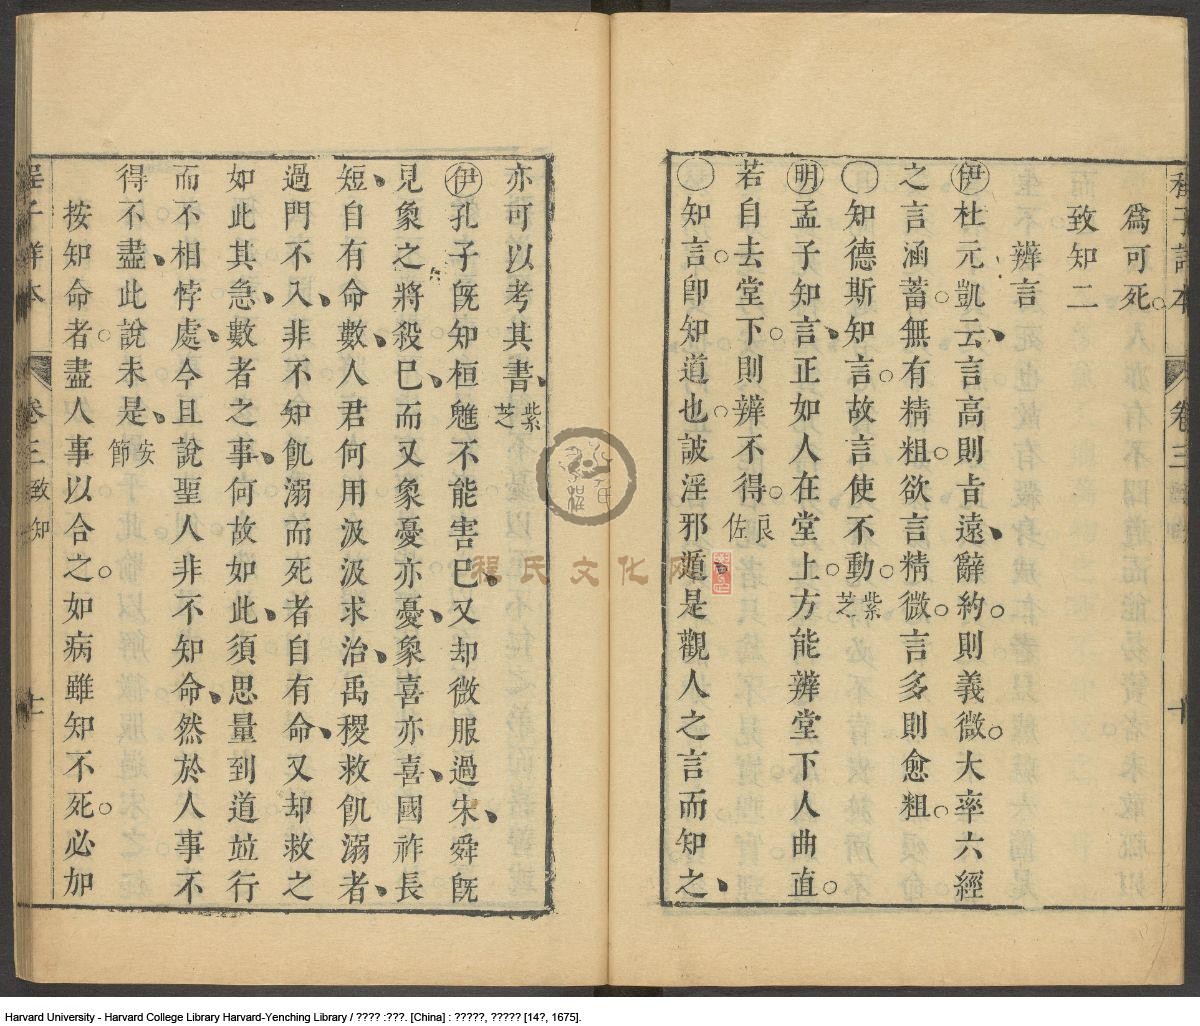 爲可死
致知二
辨言
伊杜元凱云言高則旨遠辭約則義微大率六經
之言涵蓄無有精粗欲言精微言多則愈粗
知德斯知言故言使不動紫芝
明孟子知言正如人在堂上方能辨堂下人曲直
若自去堂下則辨不得良佐
知言卽知道也詖淫邪遁是觀人之言而知之
卷三
十
亦可以考其書紫芝
伊孔子旣知桓魋不能害已又却微服過宋舜旣
見象之將殺已而又象憂亦憂象喜亦喜國祚長
短自有命數人君何用汲汲求治禹稷救飢溺者
過門不入非不知飢溺而死者自有命又却救之
如此其急數者之事何故如此須思量到道竝行
而不相悖處今且說聖人非不知命然於人事不
得不盡此說未是安節
按知命者盡人事以合之如病雖知不死必加
程子詳本
卷三
致知
十一
程氏文化网
Harvard University - Harvard College Library Harvard-Yenching Library / ???? :???. [China] : ?????, ????? [14?, 1675].